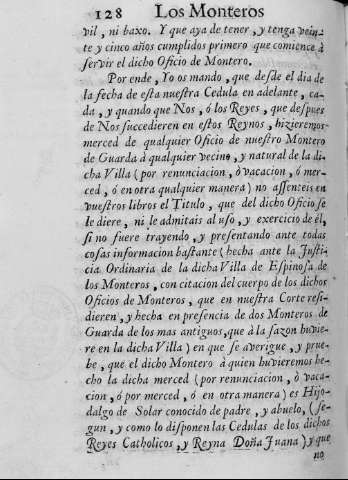 128 Los Monteros
vil, ni baxo. Y que aya de tener, y tenga vein-
te y cinco años cumplidos primero que comience à
servir el dicho Oficio de Montero.
Por ende, Yo os mando, que desde el dia de
la fecha de esta nuestra Cedula en adelante, ca-
da, y quando que Nos, ò los Reyes, que despues
de Nos succedieren en estos Reynos, hizieremos
merced de qualquier Oficio de nuestro Montero
de Guarda à qualquier vecino, y natural de la di-
cha Villa (por renunciacion, ò vacacion, ò mer-
ced, ò en otra qualquier manera) no assenteis en
vuestros libros el Titulo, que del dicho Oficio se
le diere, ni le admitais al uso, y exercicio de èl,
si no fuere trayendo, y presentando ante todas
cosas informacion bastante (hecha ante la Justi-
cia Ordinaria de la dicha Villa de Espinosa de
los Monteros, con citacion del cuerpo de los dichos
Oficios de Monteros, que en nuestra Corte resi-
dieren, y hecha en presencia de dos Monteros de
Guarda de los mas antiguos, que à la sazon huvie-
re en la dicha Villa) en que se averigue, y prue-
be, que el dicho Montero à quien huvieremos he-
cho la dicha merced (por renunciacion, ò vaca-
cion, ò por merced, ò en otra manera) es Hijo-
dalgo de Solar conocido de padre, y abuelo, (se-
gun, y como lo disponen las Cedulas de los dichos
Reyes Catholicos, y Reyna Doña Juana) y que
no